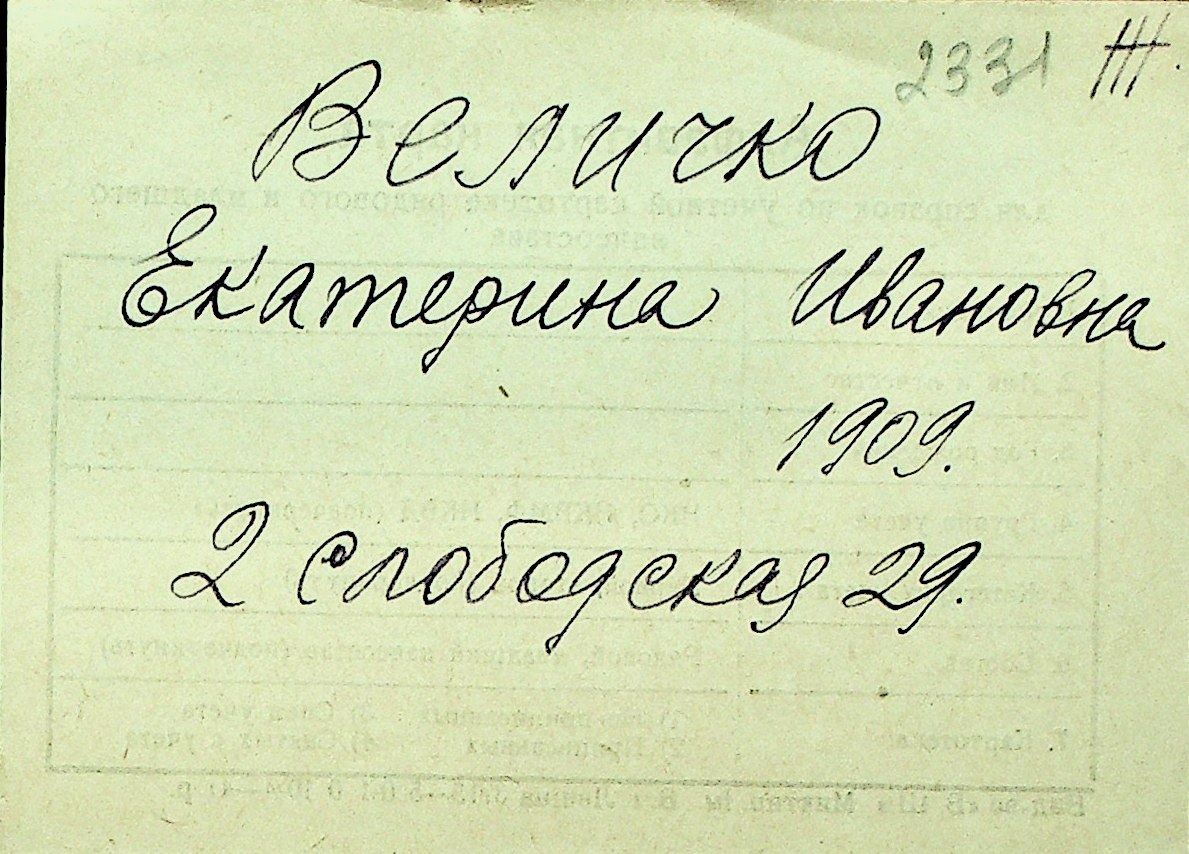 2331 Ж.
Величко
Екатерина Ивановна
1909.
2 слободская 29.